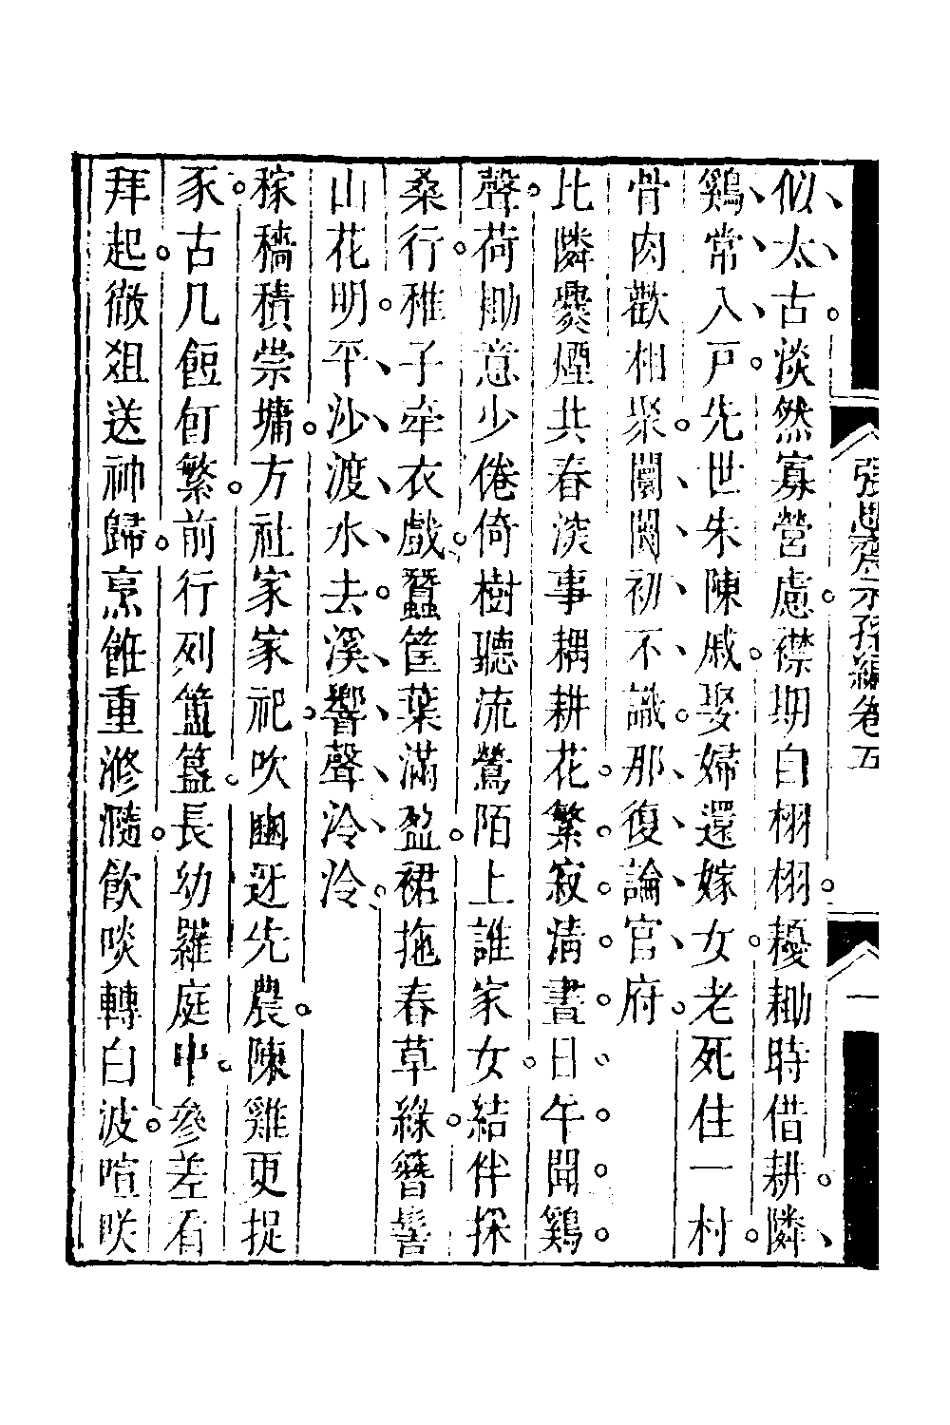 張思齋示孫編卷五
一
似太古淡然寡營慮襟期自栩栩耰耡時借耕隣
鷄常入戸先世朱陳戚娶婦還嫁女老死住一村
骨肉歡相聚闤闠初不識那復論官府
比隣爨煙共春深事耦耕花繁寂淸晝日午聞鷄
聲荷耡意少倦倚樹聽流鶯陌上誰家女結伴採
桑行稚子牽衣戲蠶筐葉滿盈裙拖春草綠簪髻
山花明平沙渡水去溪響聲泠泠
稼穡積崇墉方社家家祀吹豳迓先農陳雞更捉
豕古几餖飣繁前行列簠簋長幼羅庭中參差看
拜起徹俎送神歸烹飪重滫瀡飮啖轉白波喧咲